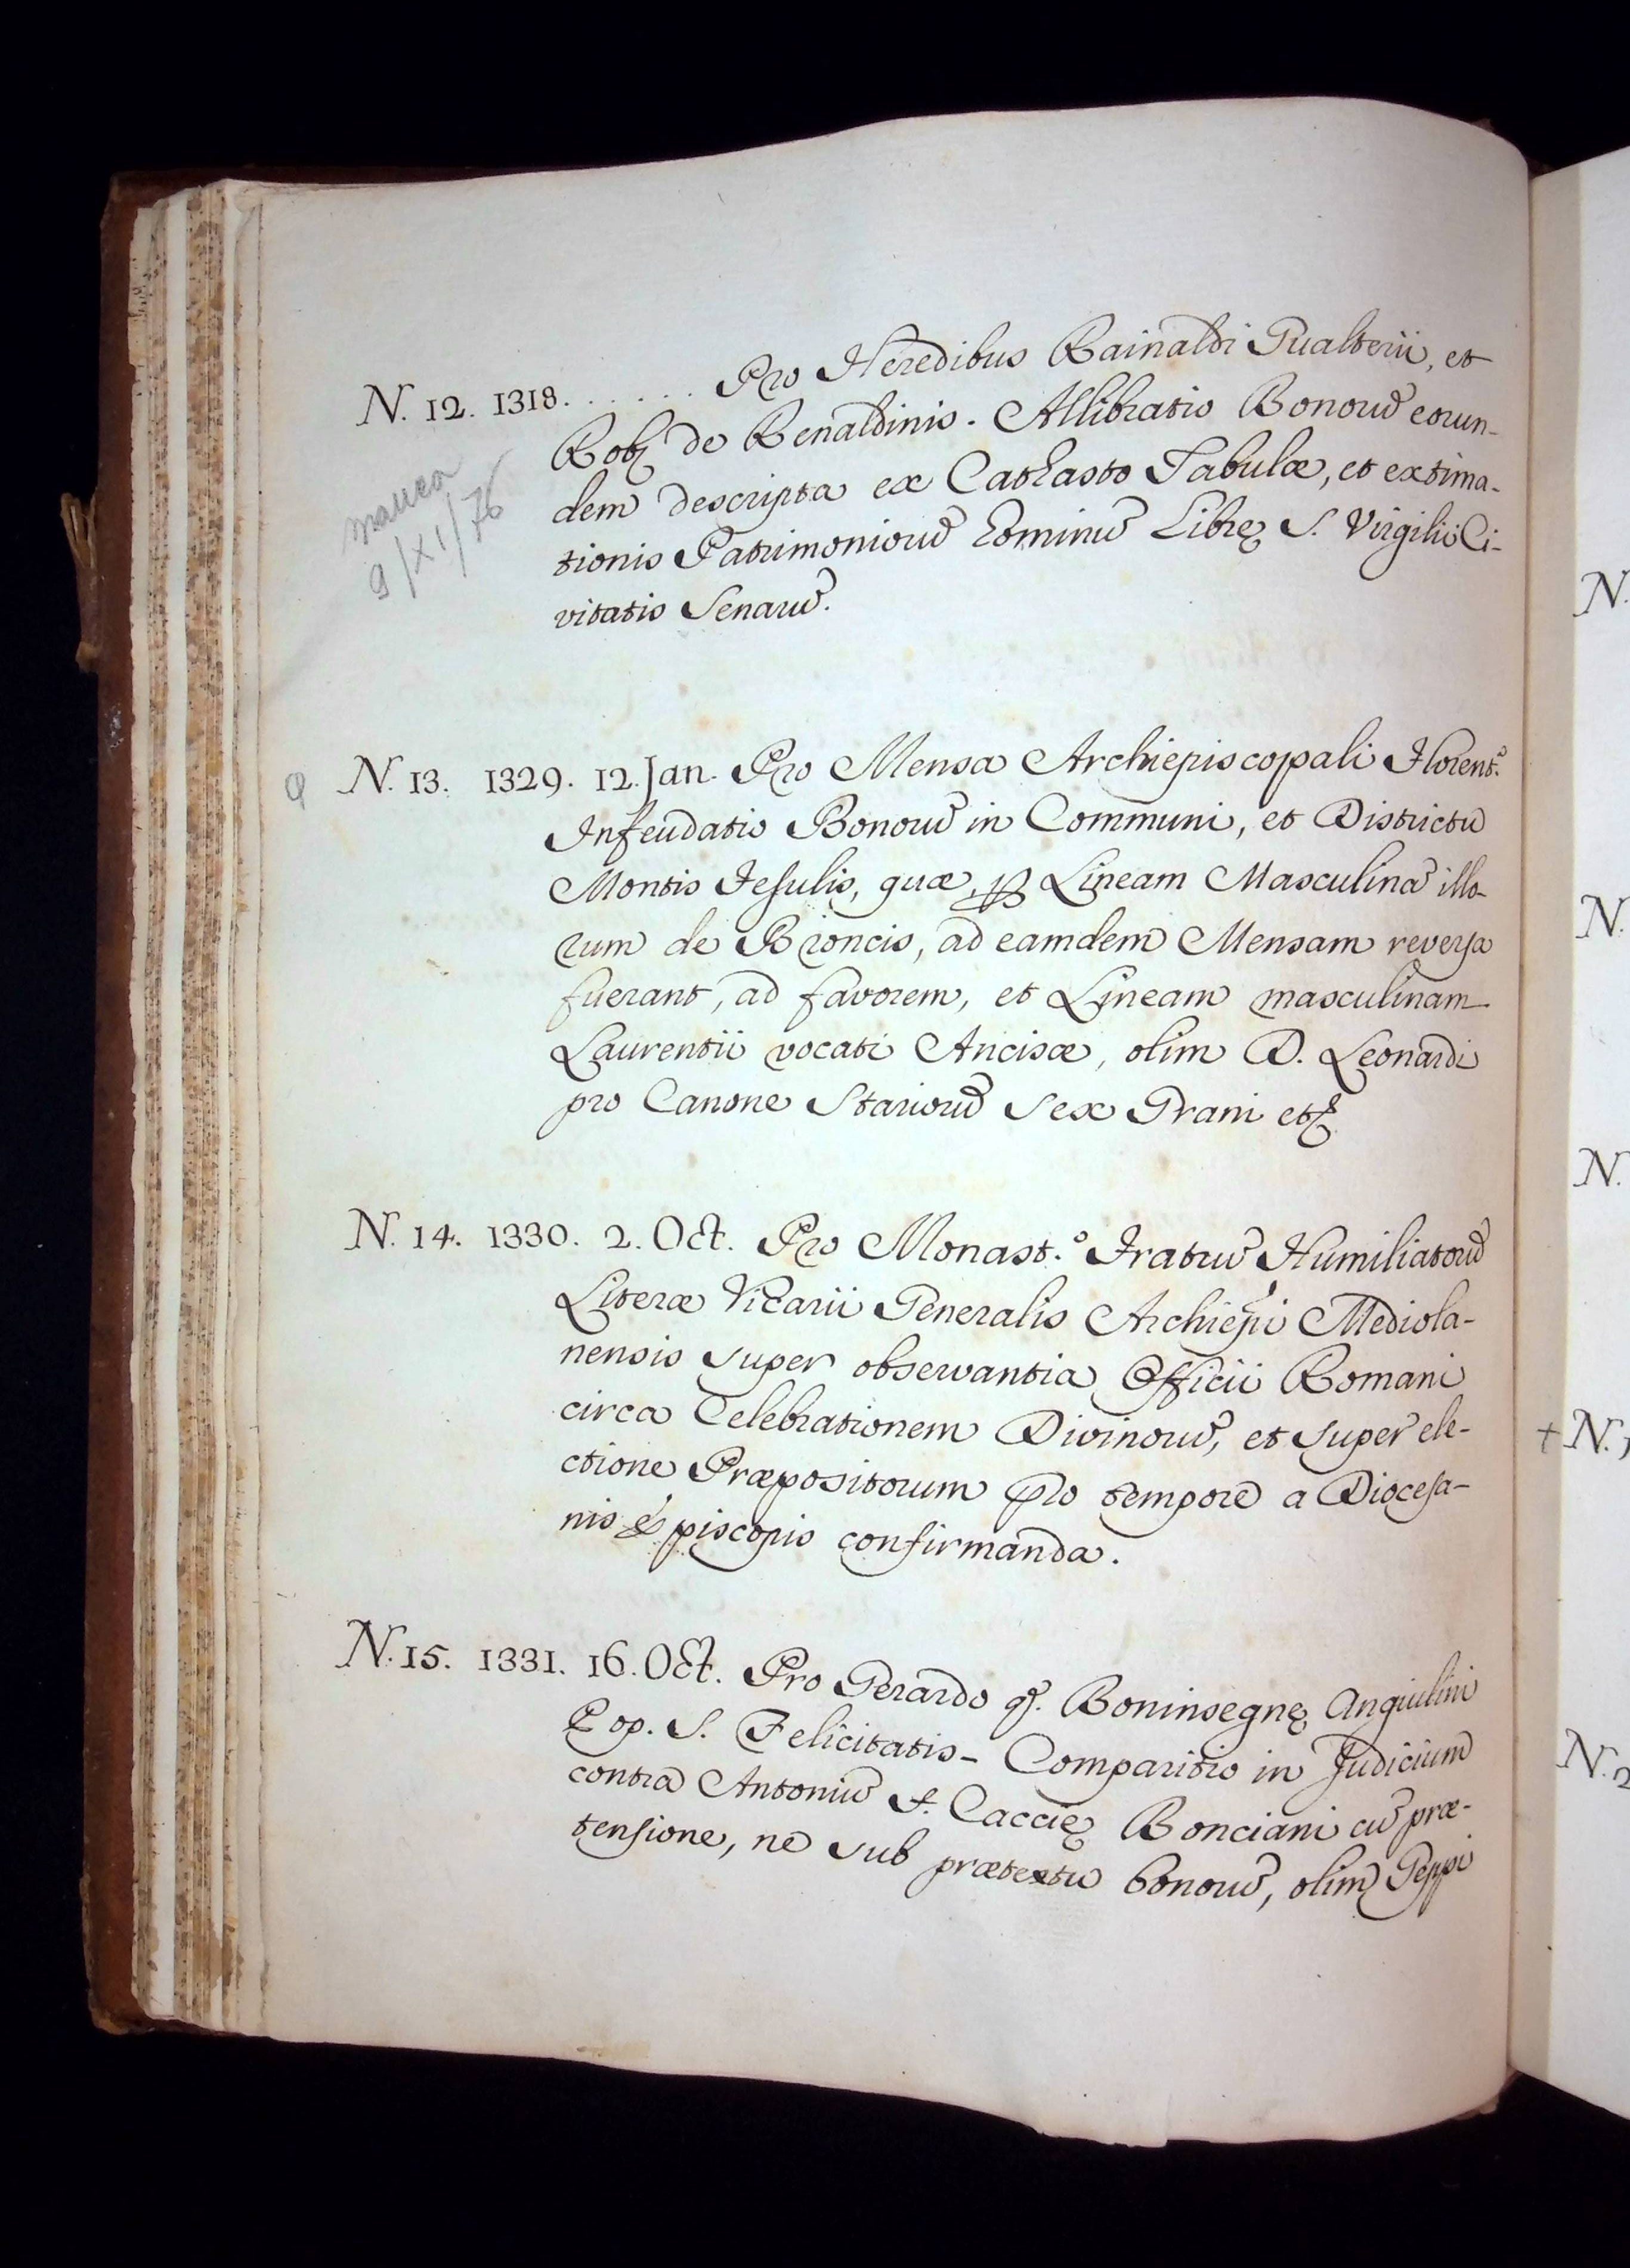 N. 12. 1318. . . . . . . Pro Heredibus Rainaldi Gualterii, et
Robi de Renaldinis. Allibratio Bonorũ eorun-
dem descripta ex Cathasto Tabulæ, et extima-
tionis Patrimoniorũ hominũ Librę S. Virgilii Ci-
vitatis Senarũ.
manca
9/XI/76
N. 13. 1329. 12. Jan. Pro Mensa Archiepiscopali Florent.ª
Infeudatio Bonorũ in Communi, et Districtu
Montis Fesulis, quæ, Lineam Masculinã illo-
rum de Broncis, ad eamdem Mensam reversa
fuerant, ad favorem, et Lineam masculinam
Laurentii vocati Ancisæ, olim D. Leonardi
pro Canone Stariorũ Sex Grani etc
N. 14. 1330. 2. Oct. Pro Monast.º Fratrũ Humiliatorũ
Literæ Vicarii Generalis Archiepi Mediola-
nensis super observantia Officii Romani
circa Celebrationem Divinorũ, et super ele-
ctione Præpositorum pro tempore a Diocesa-
nis episcopis confirmanda.
N. 15. 1331. 16. Oct. Pro Gerardo q. Boninsegnę Angiulini
Pop. S. Felicitatis - Comparitio in Judicium
contra Antoniũ f. Caccię Bonciani cũ præ-
tensione, ne sub prætextu bonorũ, olim Geppi
N.
N.
N.
+ N.
N. 2